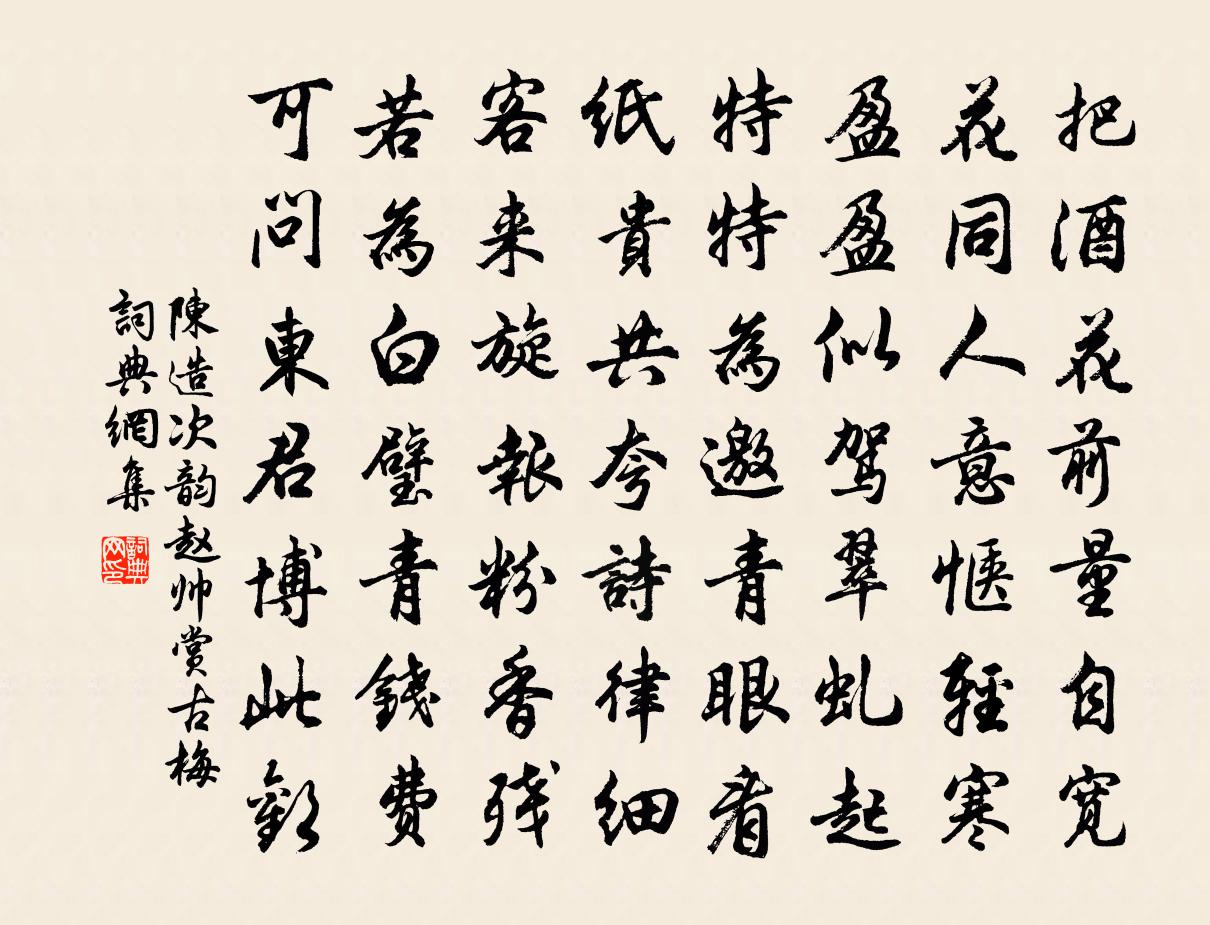 把酒花前量自宽
花同人意惬轻寒
盈盈似驾翠虬起
特特為邀青眼看
纸貴共夸詩律细
客来旋報粉香残
若為白璧青錢費
可问東君博此歡
陳造次韵赵帅赏古梅
詞典網集
詞典网印